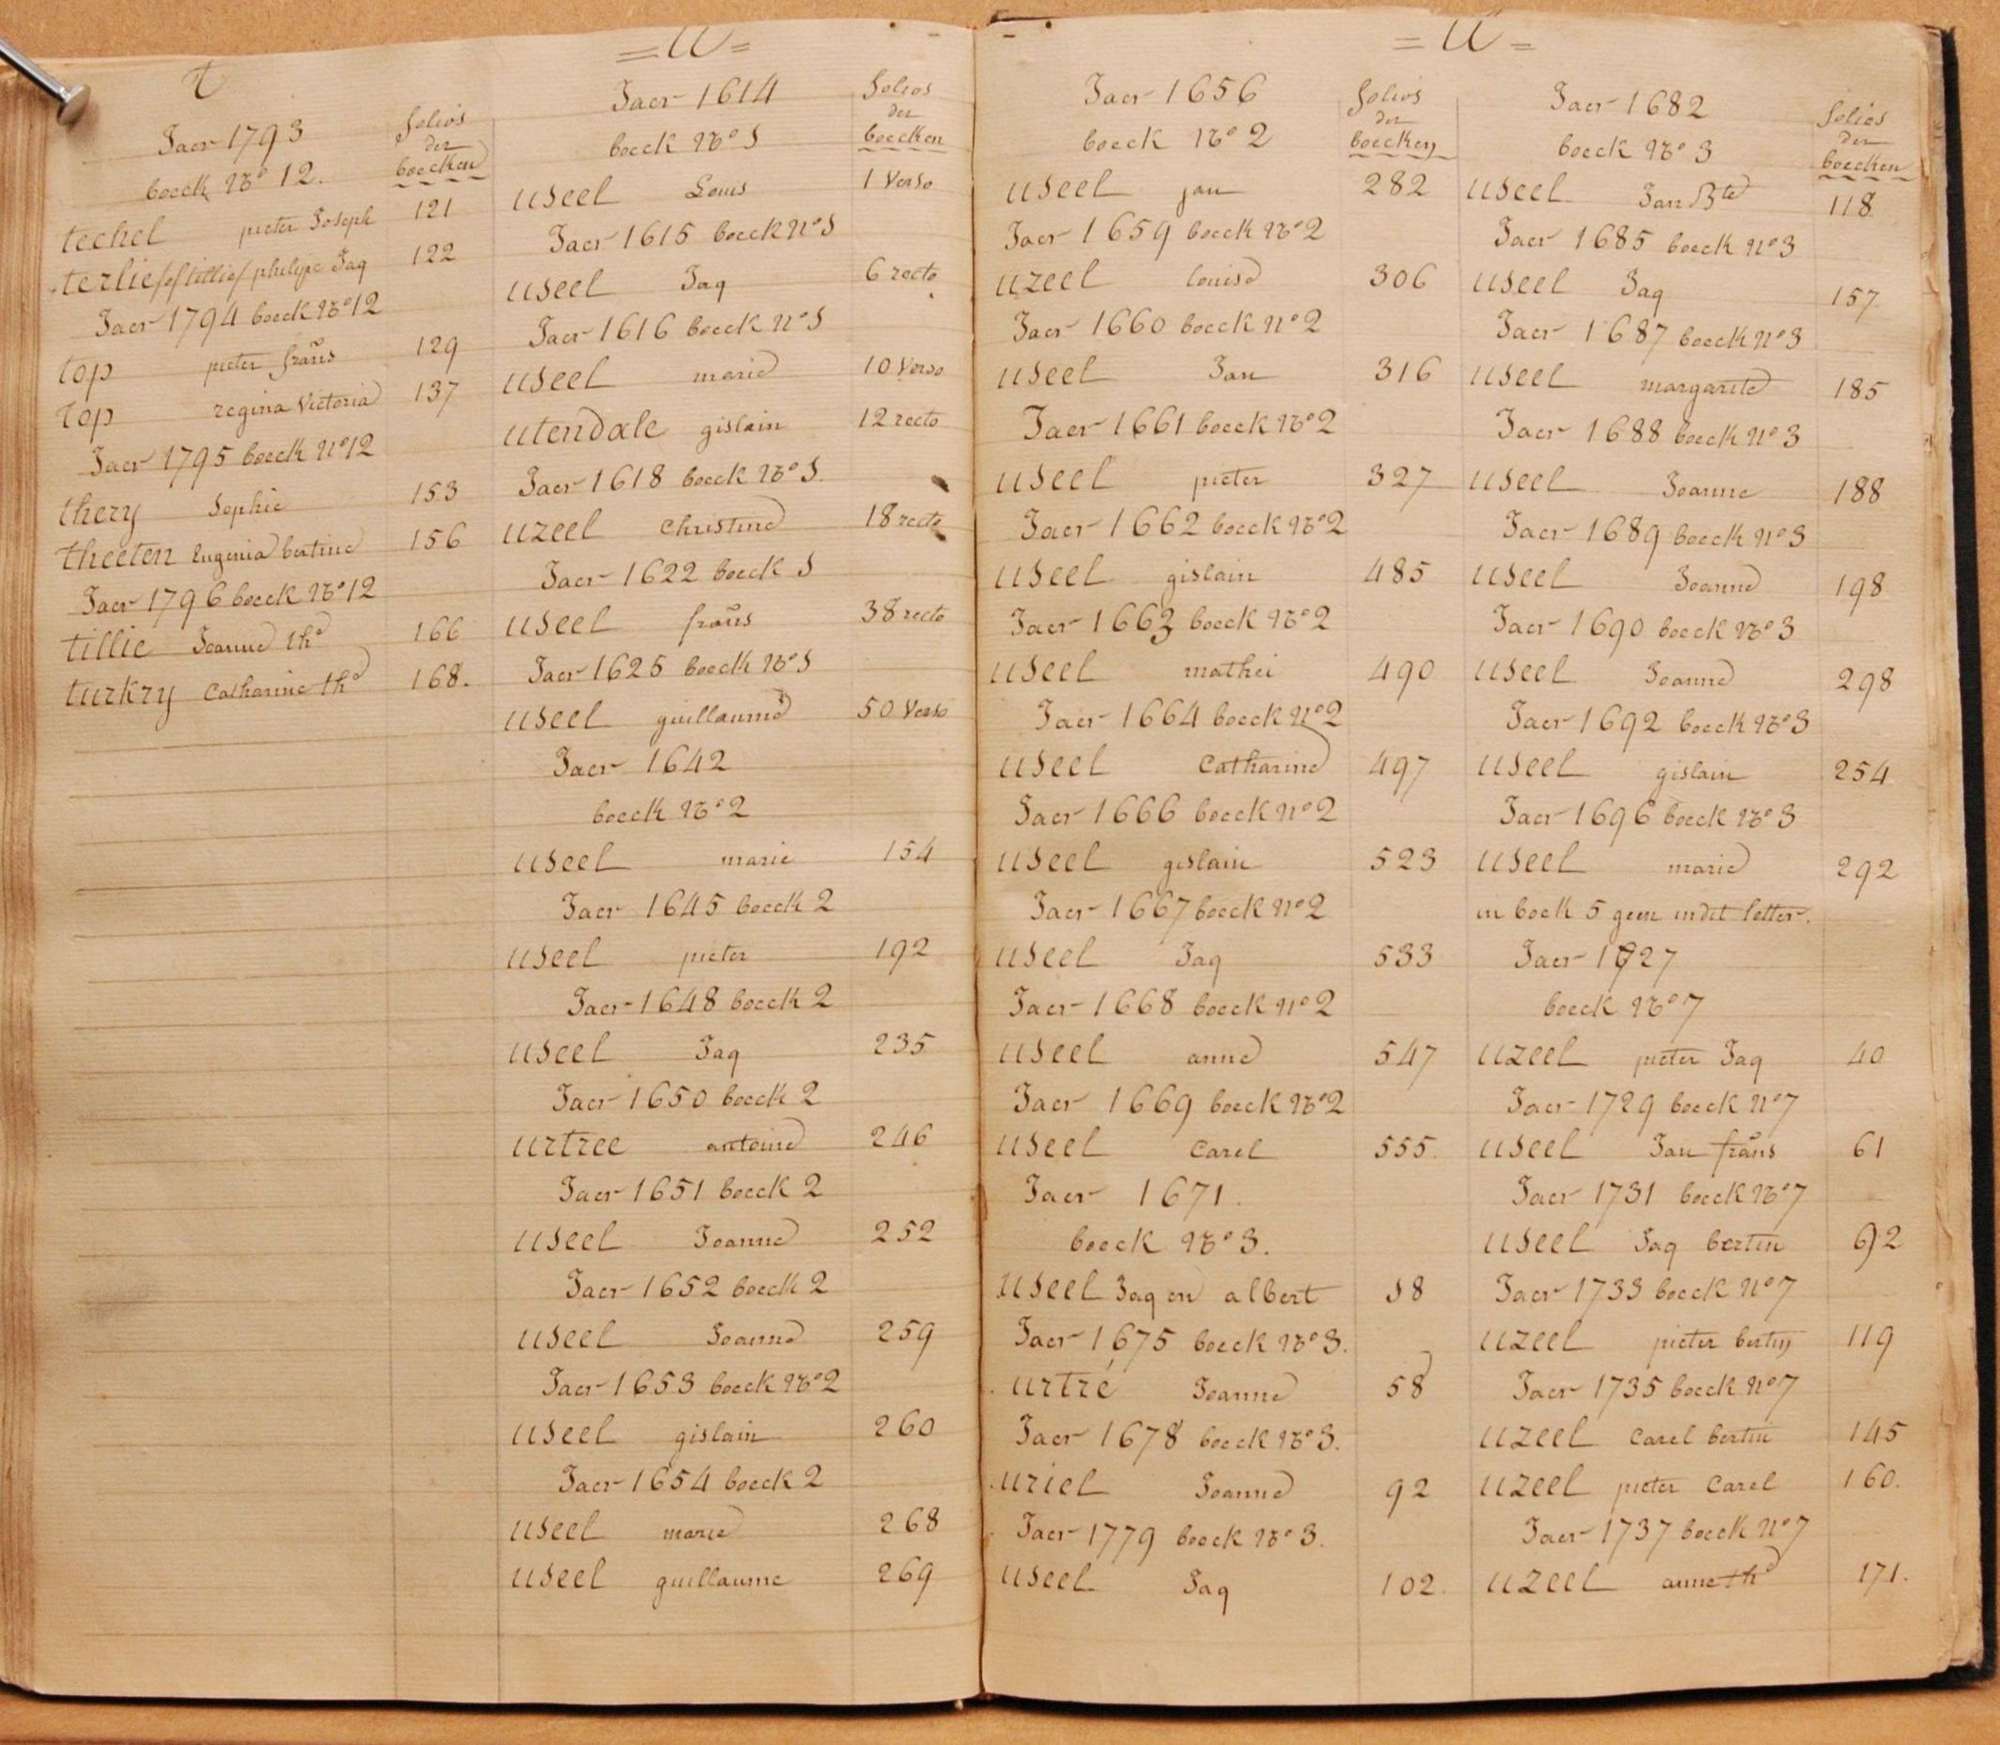 T
Jaer 1793
folios
der
boecken
boeck No 12.
techel pieter Joseph 121
terlie/of tillie/ philipe Jaq 122
Jaer 1794 boeck No 12
top pieter frans 129
top regina Victoria 137
Jaer 1795 boeck No 12
thery Sophie 153
theeten Eugenia bertine 156
Jaer 1796 boeck No 12
tillie Joanne the 166
turkry Catharine the 168.
= U =
Jaer 1614
folios
der
boecken
boeck No 1
useel Louis 1 Verso
Jaer 1615 boeck No 1
useel Jaq 6 recto
Jaer 1616 boeck No 1
useel marie 10 Verso
utendale gislain 12 recto
Jaer 1618 boeck No 1.
uzeel Christine 18 recto
Jaer 1622 boeck 1
useel frans 38 recto
Jaer 1625 boeck No 1
useel guillaume 50 Verso
Jaer 1642
boeck No 2
useel marie 154
Jaer 1645 boeck 2
useel pieter 192
Jaer 1648 boeck 2
useel Jaq 235
Jaer 1650 boeck 2
urtree antoine 246
Jaer 1651 boeck 2
useel Joanne 252
Jaer 1652 boeck 2
useel Joanne 259
Jaer 1653 boeck No 2
useel gislain 260
Jaer 1654 boeck 2
useel marie 268
useel guillaume 269
= U =
Jaer 1656
folios
der
boecken
boeck No 2
useel jan 282
Jaer 1659 boeck No 2
uzeel louise 306
Jaer 1660 boeck No 2
useel Jan 316
Jaer 1661 boeck No 2
useel pieter 327
Jaer 1662 boeck No 2
useel gislain 485
Jaer 1663 boeck No 2
useel mathei 490
Jaer 1664 boeck No 2
useel Catharine 497
Jaer 1666 boeck No 2
useel gislain 523
Jaer 1667 boeck No 2
useel Jaq 533
Jaer 1668 boeck No 2
useel anne 547
Jaer 1669 boeck No 2
useel Carel 555.
Jaer 1671.
boeck No 3.
useel Jaq en albert 18
Jaer 1675 boeck No 3.
urtré Joanne 58
Jaer 1678 boeck No 3.
uriel Joanne 92
Jaer 1779 boeck No 3.
useel Jaq 102.
Jaer 1682
folios
der
boecken
boeck No 3
useel Jan Bte 118
Jaer 1685 boeck No 3
useel Jaq 157
Jaer 1687 boeck No 3
useel margarite 185
Jaer 1688 boeck No 3
useel Joanne 188
Jaer 1689 boeck No 3
useel Joanne 198
Jaer 1690 boeck No 3
useel Joanne 298
Jaer 1692 boeck No 3
useel gislain 254
Jaer 1696 boeck No 3
useel marie 292
in boek 5 geen in dit letter.
Jaer 1727
boeck No 7
uzeel pieter Jaq 40
Jaer 1729 boeck No 7
useel Jan frans 61
Jaer 1731 boeck No 7
useel Jaq bertin 92
Jaer 1733 boeck No 7
uzeel pieter bertin 119
Jaer 1735 boeck No 7
uzeel Carel bertin 145
uzeel pieter Carel 160.
Jaer 1737 boeck No 7
uzeel anne the 171.